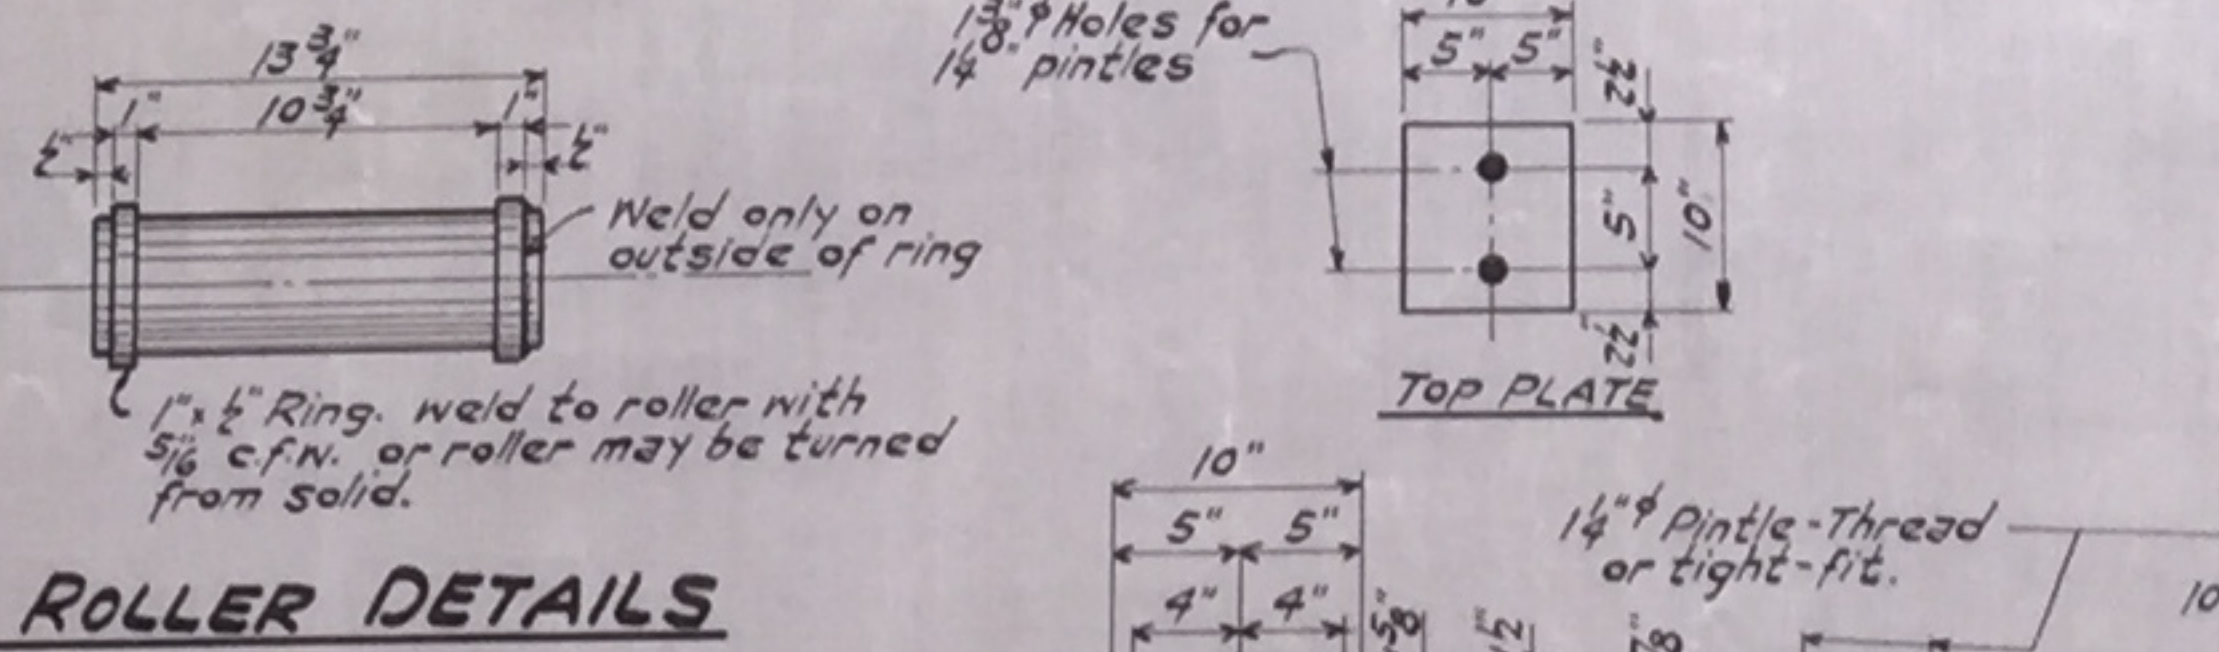 13 3/4"
1" 10 3/4" 1"
1/2" 1/2"
Weld only on
outside of ring
1" x 1/2" Ring. weld to roller with
5/16 c.f.w. or roller may be turned
from solid.
ROLLER DETAILS
1 3/8" ϕ Holes for
1 1/4" pintles
5" 5"
2 1/2"
5"
10"
2 1/2"
TOP PLATE
10"
5" 5"
4" 4"
5/8"
1/2
1 1/4" ϕ Pintle-Thread
or tight-fit.
10